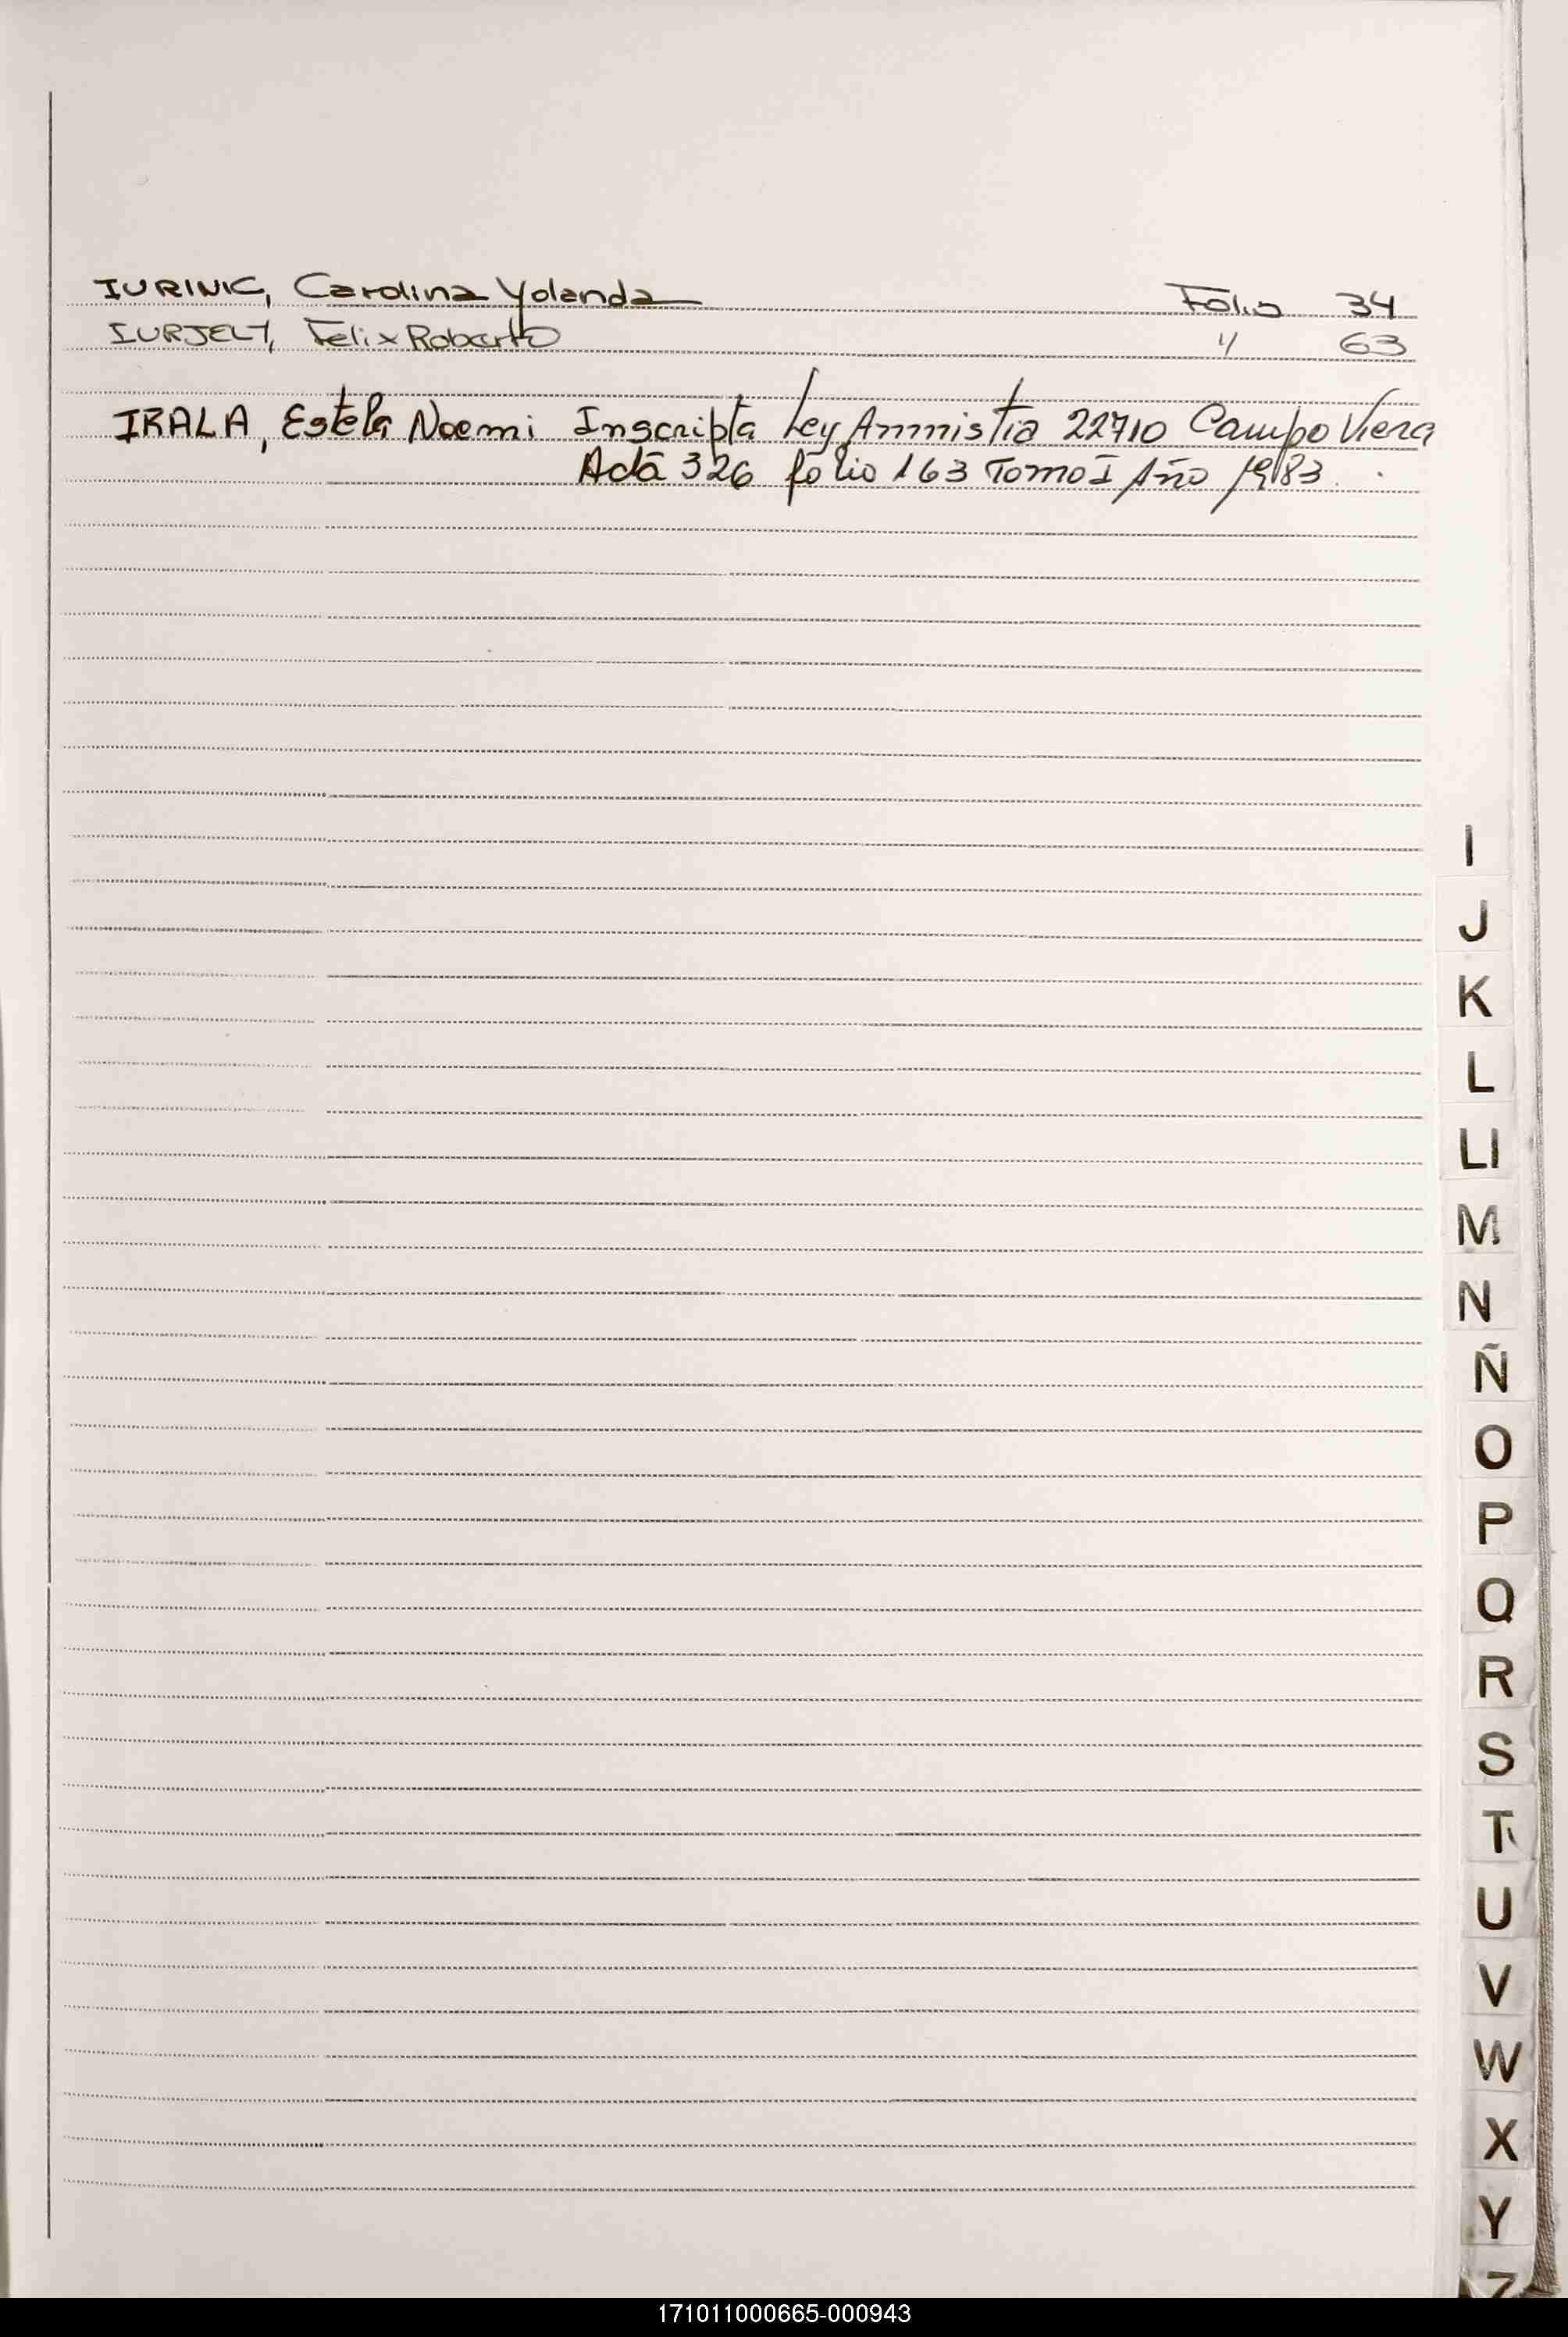 IURINIC, Carolina Yolanda Folio 34
Felix Roberto " 63
IRALA, Estela Noemi Inscripta Ley Amnistia 22710 Campo Viera
Acta 326 folio 163 Tomo I Año 1983.
I
J
K
L
Ll
M
N
Ñ
O
P
Q
R
S
T
U
V
W
X
Y
Z
171011000665-000943